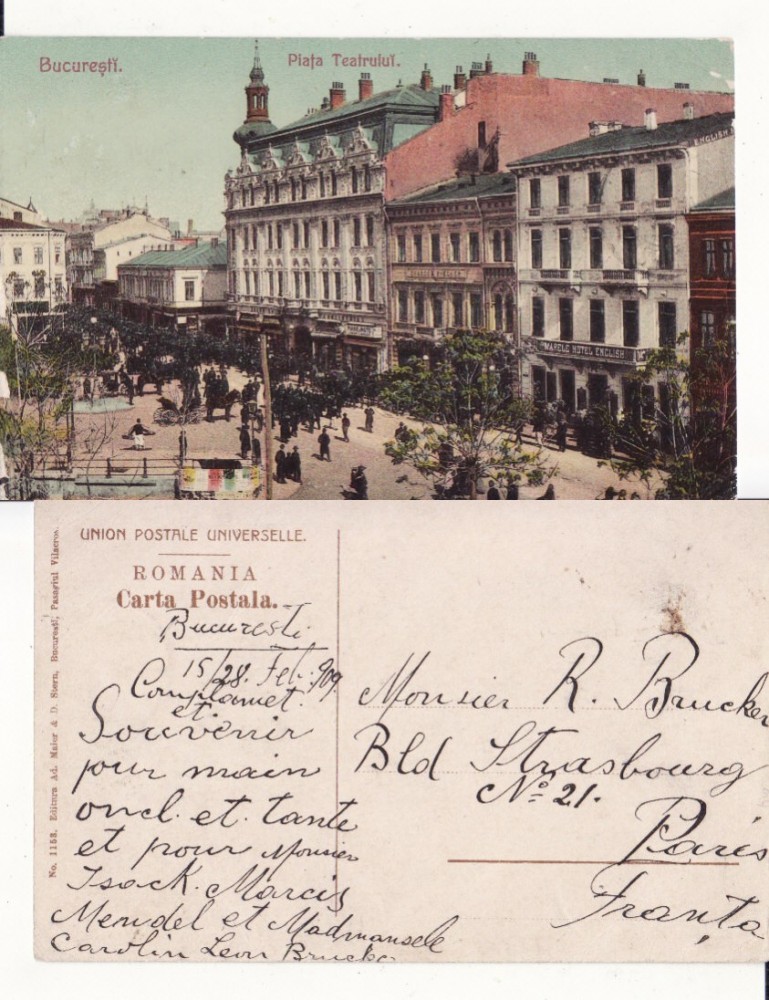 Bucureştĭ.
Piaţa Teatruluĭ.
ENGLISH
MARELE HOTEL ENGLISH
UNION POSTALE UNIVERSELLE.
ROMANIA
Carta Postala.
No. 1158. Editura Ad. Maier & D. Stern, Bucuresti, Pasagiul Vilacros.
Bucuresti
15/28. Fet. 909.
Complamet.
et.
Souvenir
pour main
oncl. et. tante
et pour Monsier
Isack. Marcis
Mendel et Madmansele
Carolin Leon Brucke
Monsier R. Brucker
Bld Strasbourg
No 21.
Paris
Franţa